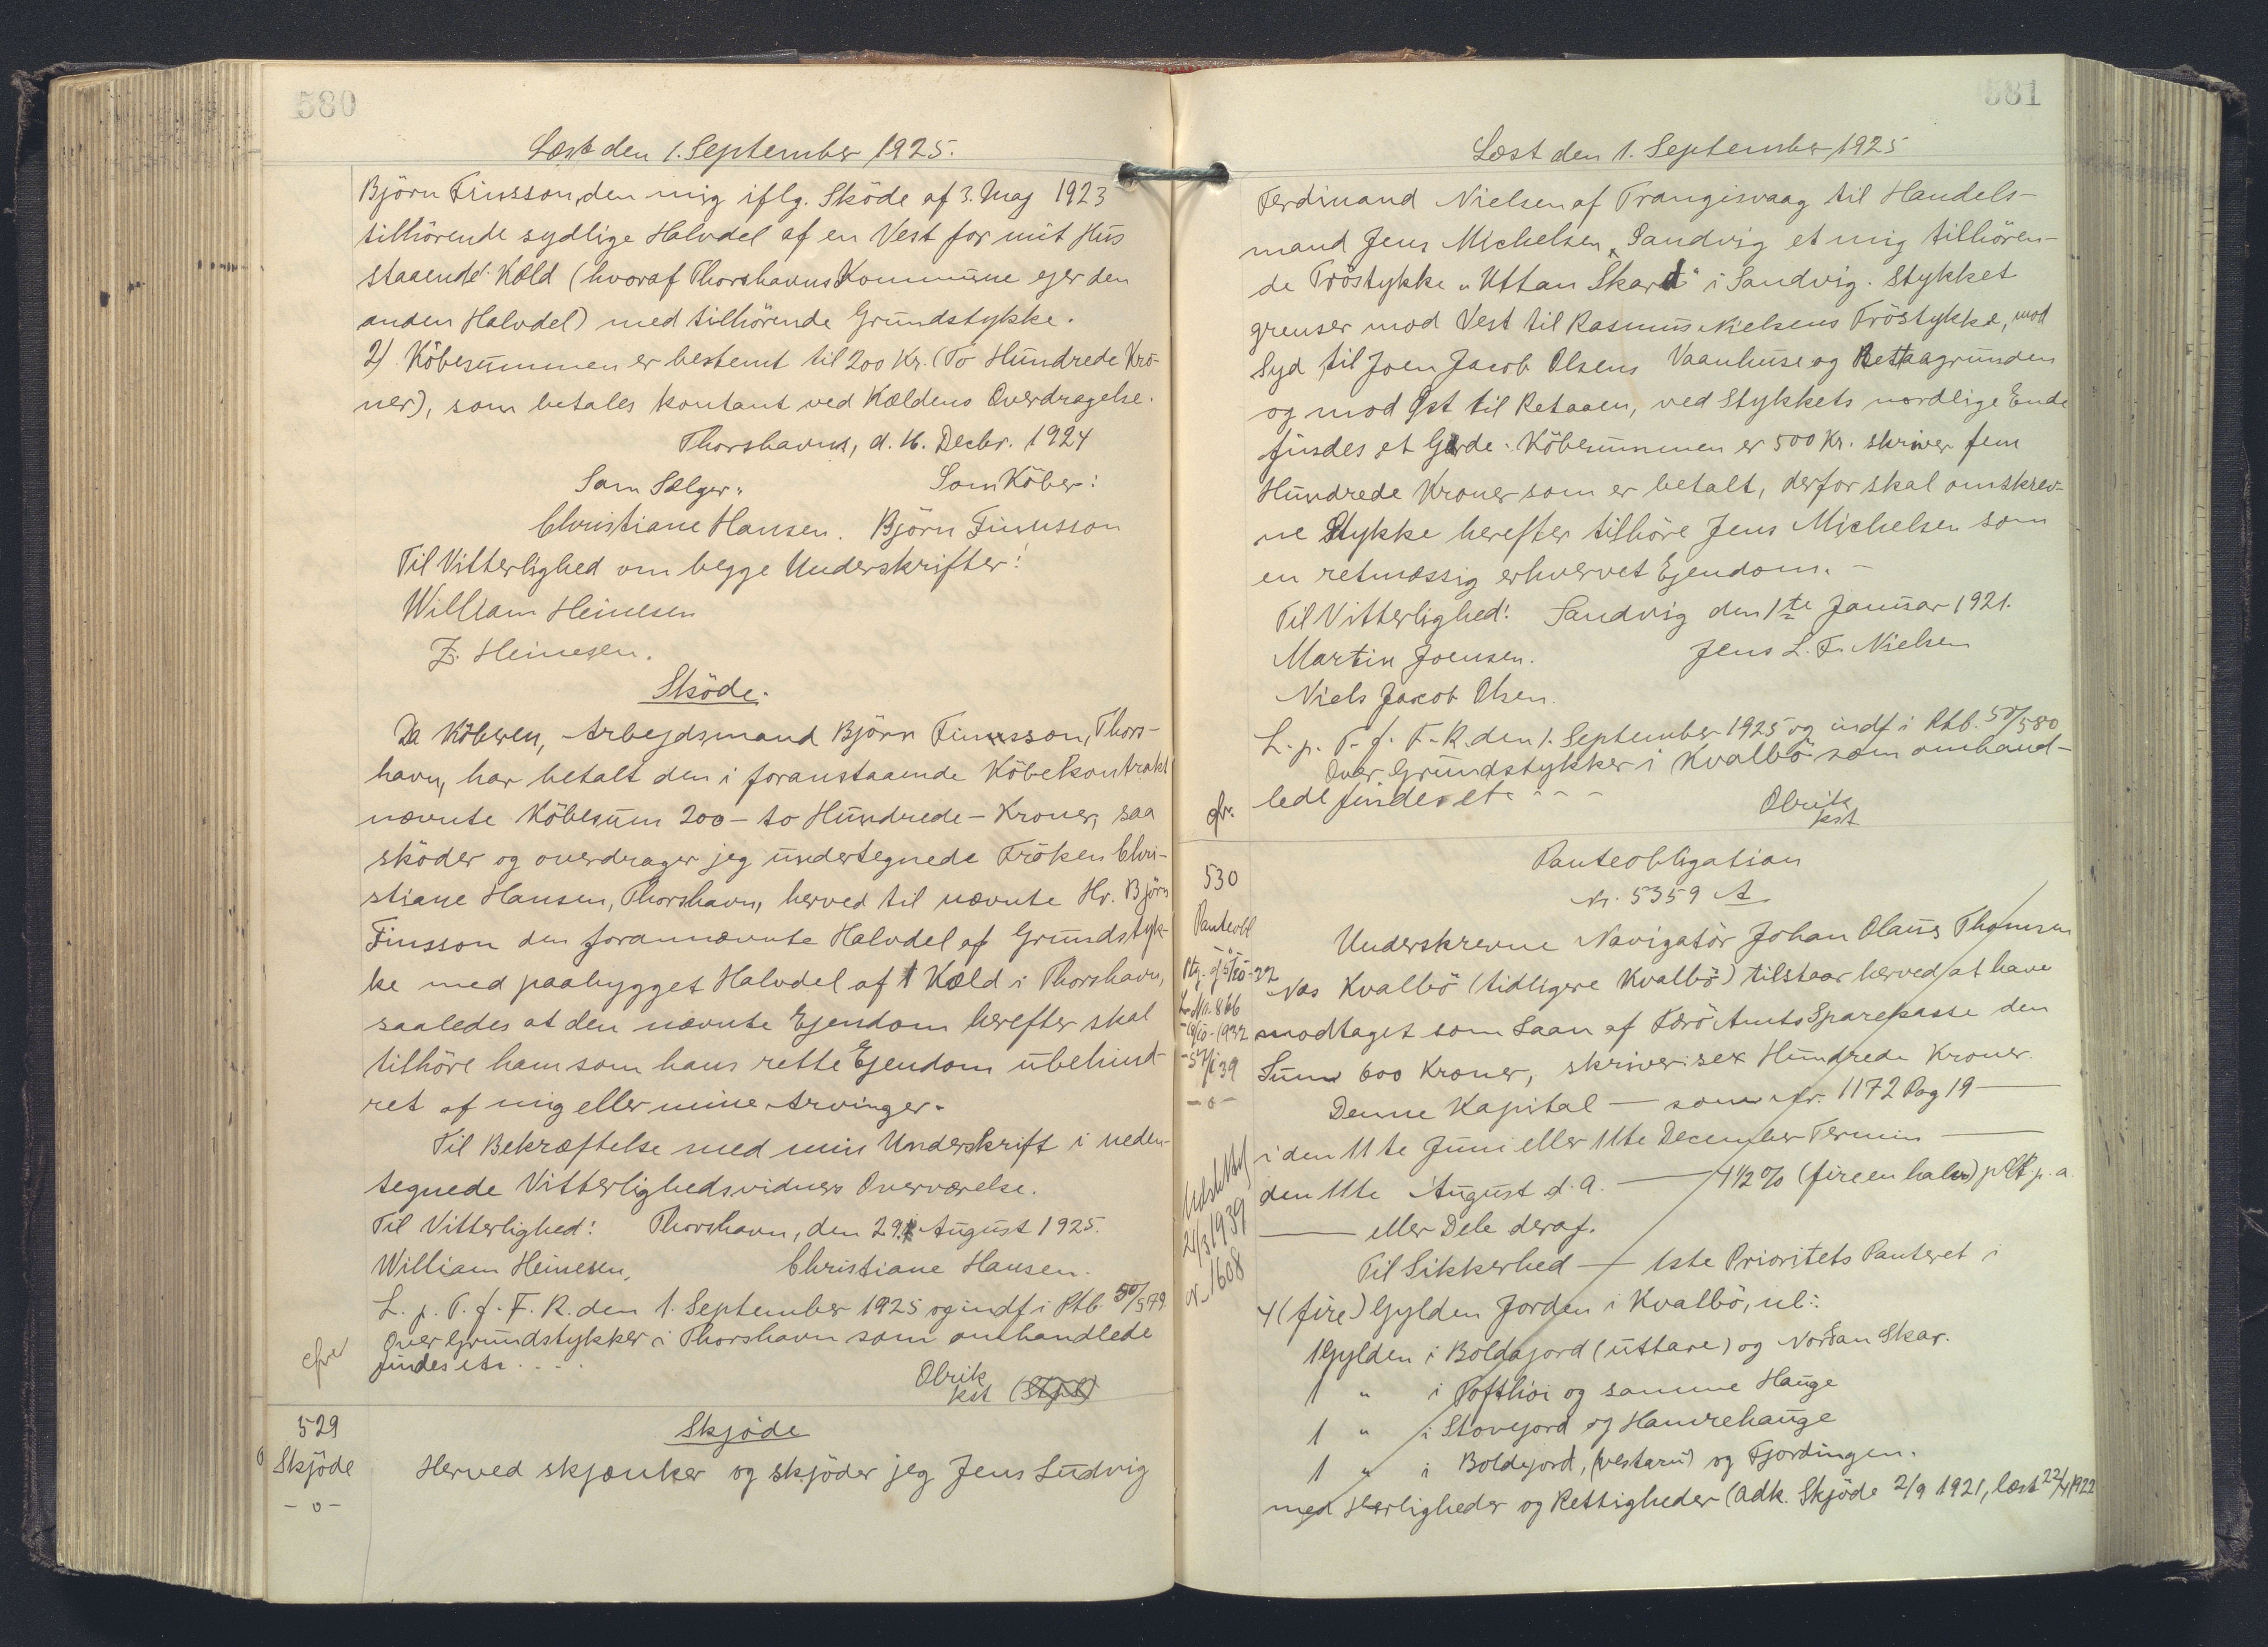 580
Læst den 1. September 1925.
Björn Finsson, den mig iflg. Sköde af 3. Maj 1923
tilhörende sydlige Halvdel af en Vest for mit Hus
staaende Kæld (hvoraf Thorshavns Kommune ejer den
anden Halvdel) med tilhörende Grundstykke.
2) Köbesummen er bestemt til 200 Kr. (To Hundrede Kro-
ner), som betales kontant ved Kældens Overdragelse.
Thorshavn, d. 16. Decbr. 1924
Som Sælger: Som Köber:
Christiane Hansen. Björn Finnsson
Til Vitterlighed om begge Underskrifter:
William Heinesen
Z. Heinesen.
Sköde.
Da Köberen, Arbejdsmand Björn Finnsson, Thors-
havn, har betalt den i foranstaaende Köbekontrakt
nævnte Köbesum 200 – to Hundrede – Kroner, saa
sköder og overdrager jeg undertegnede Fröken Chri-
stiane Hansen, Thorshavn, herved til nævnte Hr. Björn
Finsson den forannævnte Halvdel af Grundstyk-
ke med paabygget Halvdel af 1 Kæld i Thorshavn,
saaledes at den nævnte Ejendom herefter skal
tilhöre ham som hans rette Ejendom ubehind-
ret af mig eller mine Arvinger.
Til Bekræftelse med min Underskrift i neden-
tegnede Vitterlighedsvidners Overværelse.
Til Vitterlighed: Thorshavn, den 29. August 1925.
William Heinesen, Christiane Hansen.
L. p. T. f. F. R. den 1. September 1925 og indf i Ptb. 50/579.
Over Grundstykker i Thorshavn som omhandlede
findes etc. . . . .
cfr
Olrik
kst
529
Skjöde
– o –
Skjöde
Herved skjænker og skjöder jeg Jens Ludvig
581
Læst den 1. September 1925
Ferdinand Nielsen af Trangisvaag til Handels-
mand Jens Michelsen, Sandvig et mig tilhören-
de Tröstykke "Uttan Skard" i Sandvig. Stykket
grenser mod Vest til Rasmus Nielsens Tröstykke, mod
Syd til Joen Jacob Olsens Vaanhuse og Retaagrunden
og mod Øst til Retaaen, ved Stykkets nordlige Ende
findes et Gerde. Köbesummen er 500 Kr. skriver fem
Hundrede Kroner som er betalt, derfor skal omskrev-
ne Stykke herefter tilhöre Jens Michelsen som
en retmæssig erhvervet Ejendom. –
Til Vitterlighed: Sandvig den 1te Januar 1921.
Martin Joensen. Jens L. F. Nielsen
Niels Jacob Olsen.
L. p. T. f. F. R. den 1. September 1925 og indf i Ptb. 50/580
Over Grundstykker i Kvalbö som omhand-
lede findes etc - - -
cfr.
Olrik
kst
530
Panteobl
Nr. 866
Udslettet
21/3 1939
nr. 1608
Panteobligation
Nr. 5359 A
Underskrevne Navigatör Johan Olaus Thomsen
Næs Kvalbö (tidligere Kvalbö) tilstaar herved at have
modtaget som Laan af Færö Amts Sparekasse den
Sum 600 Kroner, skriver: sex Hundrede Kroner.
Denne Kapital — som nr. 1172 Pag 19 —
i den 11te Juni eller 11te December Termin —
den 11te August d. A. — 4 1/2 % (fire en halv) pCt. p. a.
— eller Dele deraf.
Til Sikkerhed — 1ste Prioritets Panteret i
4 (fire) Gylden Jorden i Kvalbö, nl:
1 Gylden i Boldajord (uttare) og Nordan Skar.
1 " i Tofthöi og samme Hauge
1 " i Stovejord og Hamrehauge
1 " i Boldejord, (vestaru) og Fjordingen.
med Herligheder og Rettigheder (Adk. Skjöde 2/9 1921, læst 22/4 1922